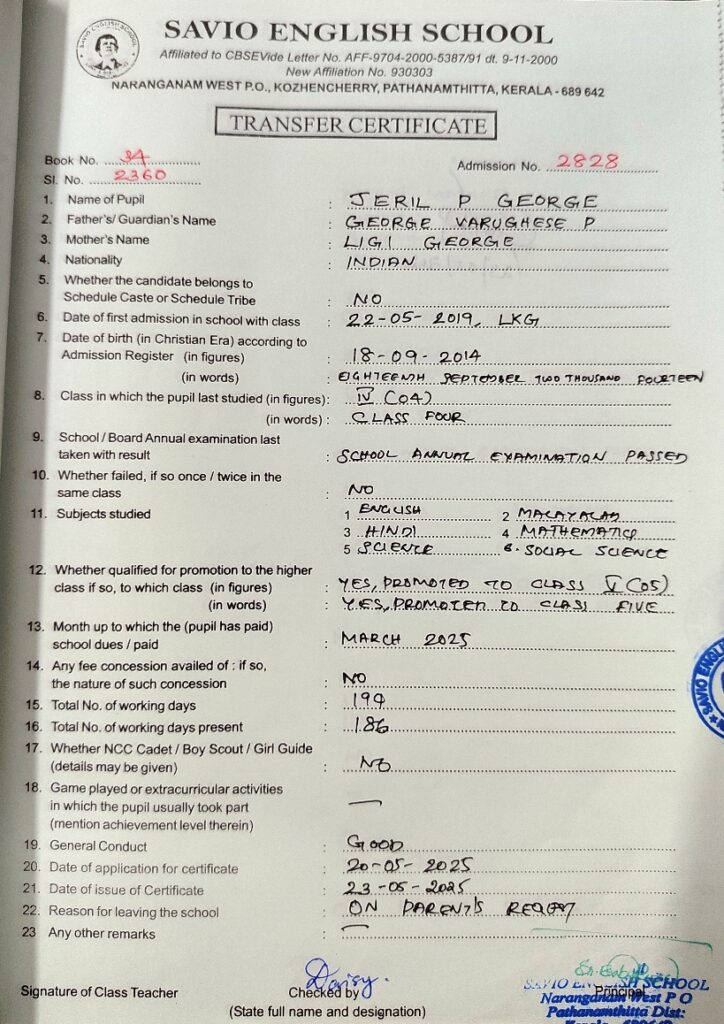 SAVIO ENGLISH SCHOOL
Affiliated to CBSEVide Letter No. AFF-9704-2000-5387/91 dt. 9-11-2000
New Affiliation No. 930303
NARANGANAM WEST P.O., KOZHENCHERRY, PATHANAMTHITTA, KERALA - 689 642
TRANSFER CERTIFICATE
Book No. 34
Admission No. 2828
Sl. No. 2360
1. Name of Pupil : JERIL P GEORGE
2. Father's/ Guardian's Name : GEORGE VARUGHESE P
3. Mother's Name : LIGI GEORGE
4. Nationality : INDIAN
5. Whether the candidate belongs to
Schedule Caste or Schedule Tribe : NO
6. Date of first admission in school with class : 22-05-2019, LKG
7. Date of birth (in Christian Era) according to
Admission Register (in figures) : 18-09-2014
(in words) : EIGHTEENTH SEPTEMBER TWO THOUSAND FOURTEEN
8. Class in which the pupil last studied (in figures): IV (04)
(in words) : CLASS FOUR
9. School / Board Annual examination last
taken with result : SCHOOL ANNUAL EXAMINATION PASSED
10. Whether failed, if so once / twice in the
same class : NO
11. Subjects studied 1 ENGLISH 2 MALAYALAM
3 HINDI 4 MATHEMATICS
5 SCIENCE 6. SOCIAL SCIENCE
12. Whether qualified for promotion to the higher
class if so, to which class (in figures) : YES, PROMOTED TO CLASS V (05)
(in words) : YES, PROMOTED TO CLASS FIVE
13. Month up to which the (pupil has paid)
school dues / paid : MARCH 2025
14. Any fee concession availed of : if so,
the nature of such concession : NO
15. Total No. of working days : 194
16. Total No. of working days present : 186
17. Whether NCC Cadet / Boy Scout / Girl Guide
(details may be given) : NO
18. Game played or extracurricular activities
in which the pupil usually took part : —
(mention achievement level therein)
19. General Conduct : GOOD
20. Date of application for certificate : 20-05-2025
21. Date of issue of Certificate : 23-05-2025
22. Reason for leaving the school : ON PARENT'S REQUEST
23 Any other remarks : —
Daisy.
Signature of Class Teacher
Checked by
(State full name and designation)
Principal
SAVIO ENGLISH SCHOOL
Naranganam West P O
Pathanamthitta Dist:
SAVIO ENGL